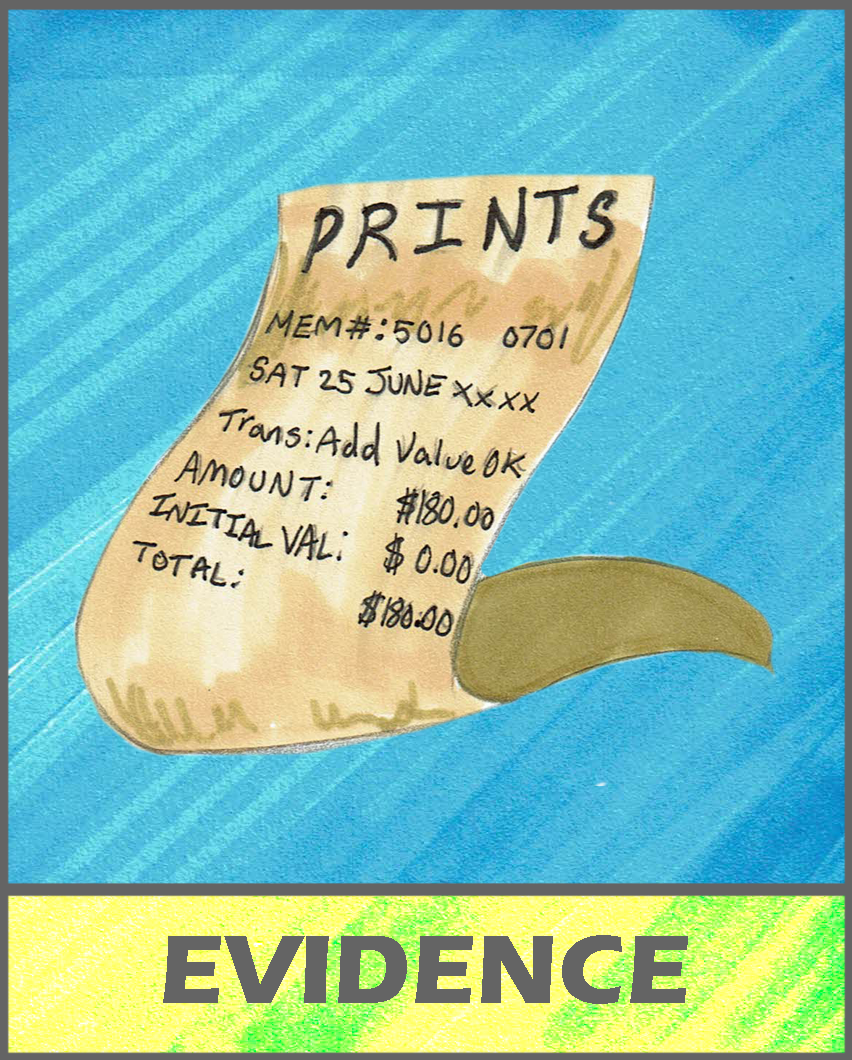 PRINTS
MEM#:5016 0701
SAT 25 JUNE XXXX
Trans:Add Value OK
AMOUNT: $180.00
INITIAL VAL: $ 0.00
TOTAL: $180.00
EVIDENCE